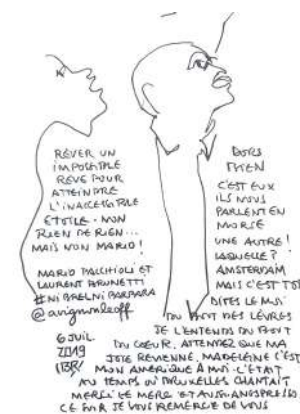 RÊVER UN
IMPOSSIBLE
RÊVE POUR
ATTEINDRE
L'INACCESSIBLE
ETOILE. MON
RIEN DE RIEN...
MAIS NON MARIO!
MARIO PACCHIOLI ET
LAURENT BRUNETTI
#NI BREL NI BARBARA
@avignonleoff
6 JUIL.
2019
DORS
BIEN
C'EST EUX
ILS NOUS
PARLENT EN
MORSE
UNE AUTRE!
LAQUELLE?
AMSTERDAM
MAIS C'EST TOI
DITES LE MOI
DU BOUT DES LÈVRES
JE L'ENTENDS DU BOUT
DU COEUR, ATTENDEZ QUE MA
JOIE REVIENNE, MADELEINE C'EST
MON AMÉRIQUE À MOI. C'ÉTAIT
AU TEMPS OÙ BRUXELLES CHANTAIT
MERCI LE MERLE ET
CE SOIR JE VOUS REMERCIE DE VOUS